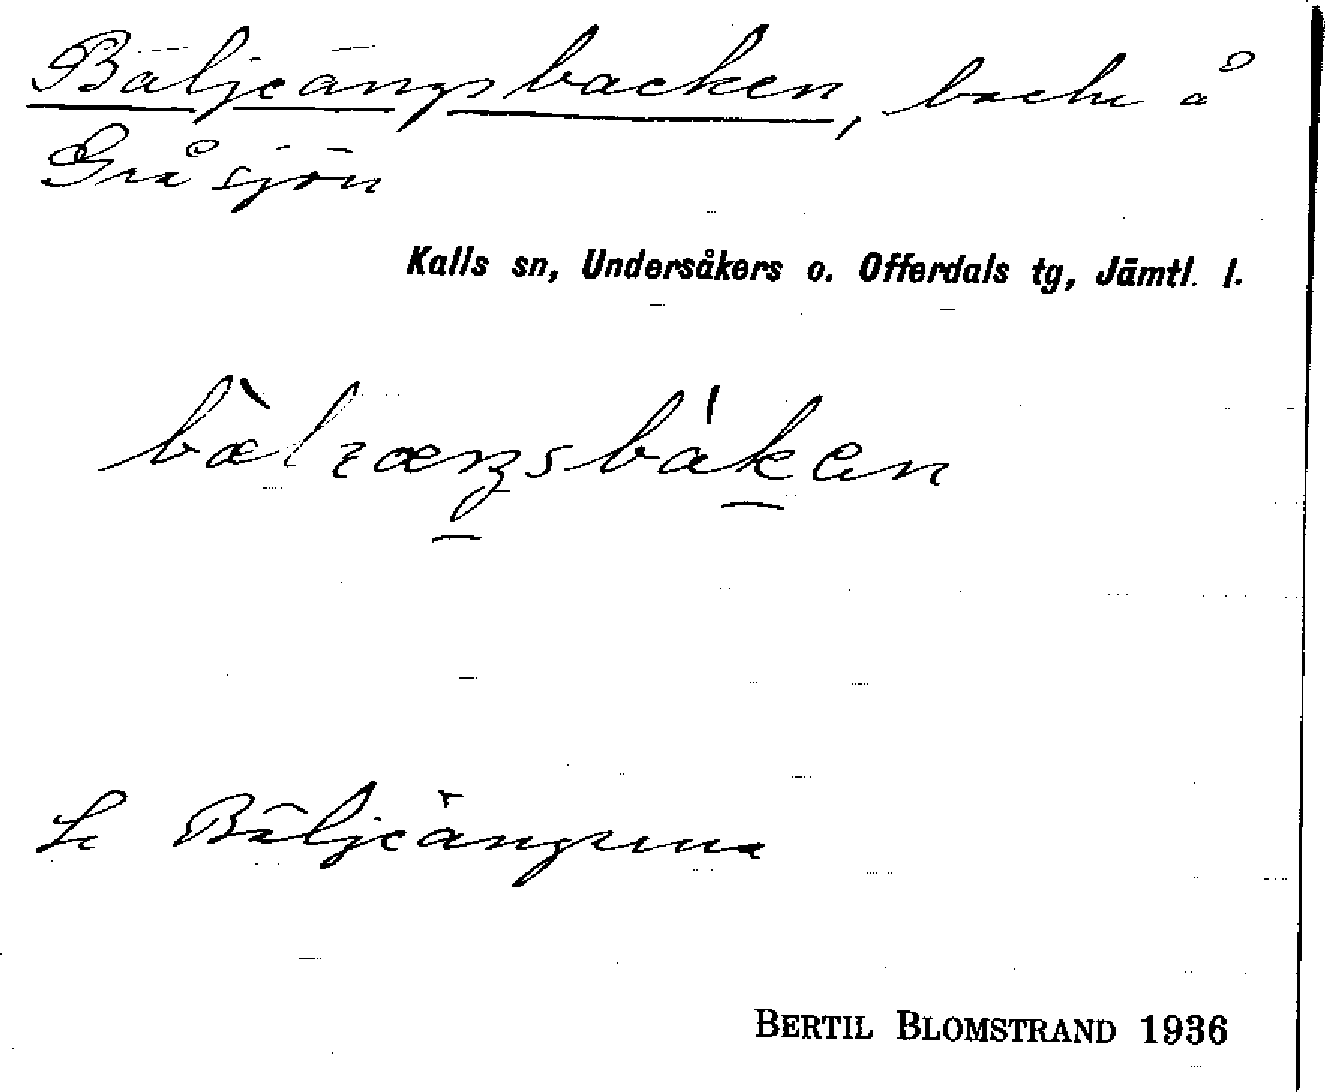 Bäljeängsbacken, backe å
Gråsjön
Kalls sn, Undersåkers o. Offerdals tg, Jämtl. l.
bæ̀lɪæŋsbákan
Se Bäljeängarna
BERTIL BLOMSTRAND 1936